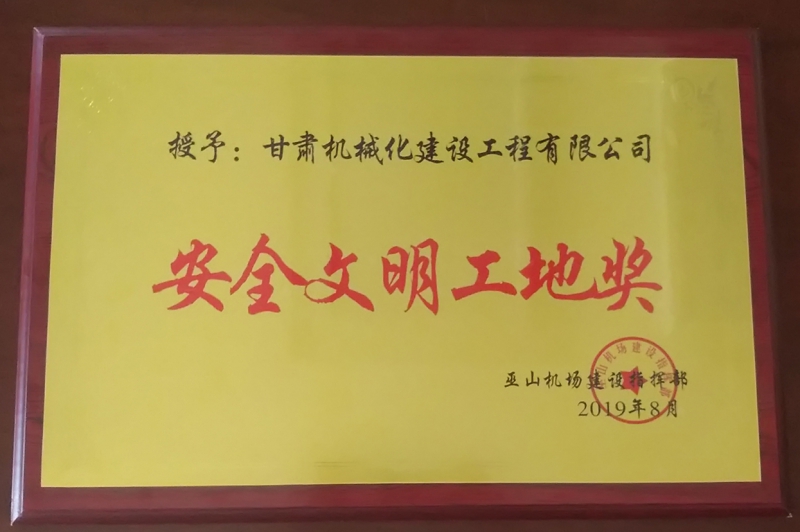 授予：甘肃机械化建设工程有限公司
安全文明工地奖
巫山机场建设指挥部
2019年8月